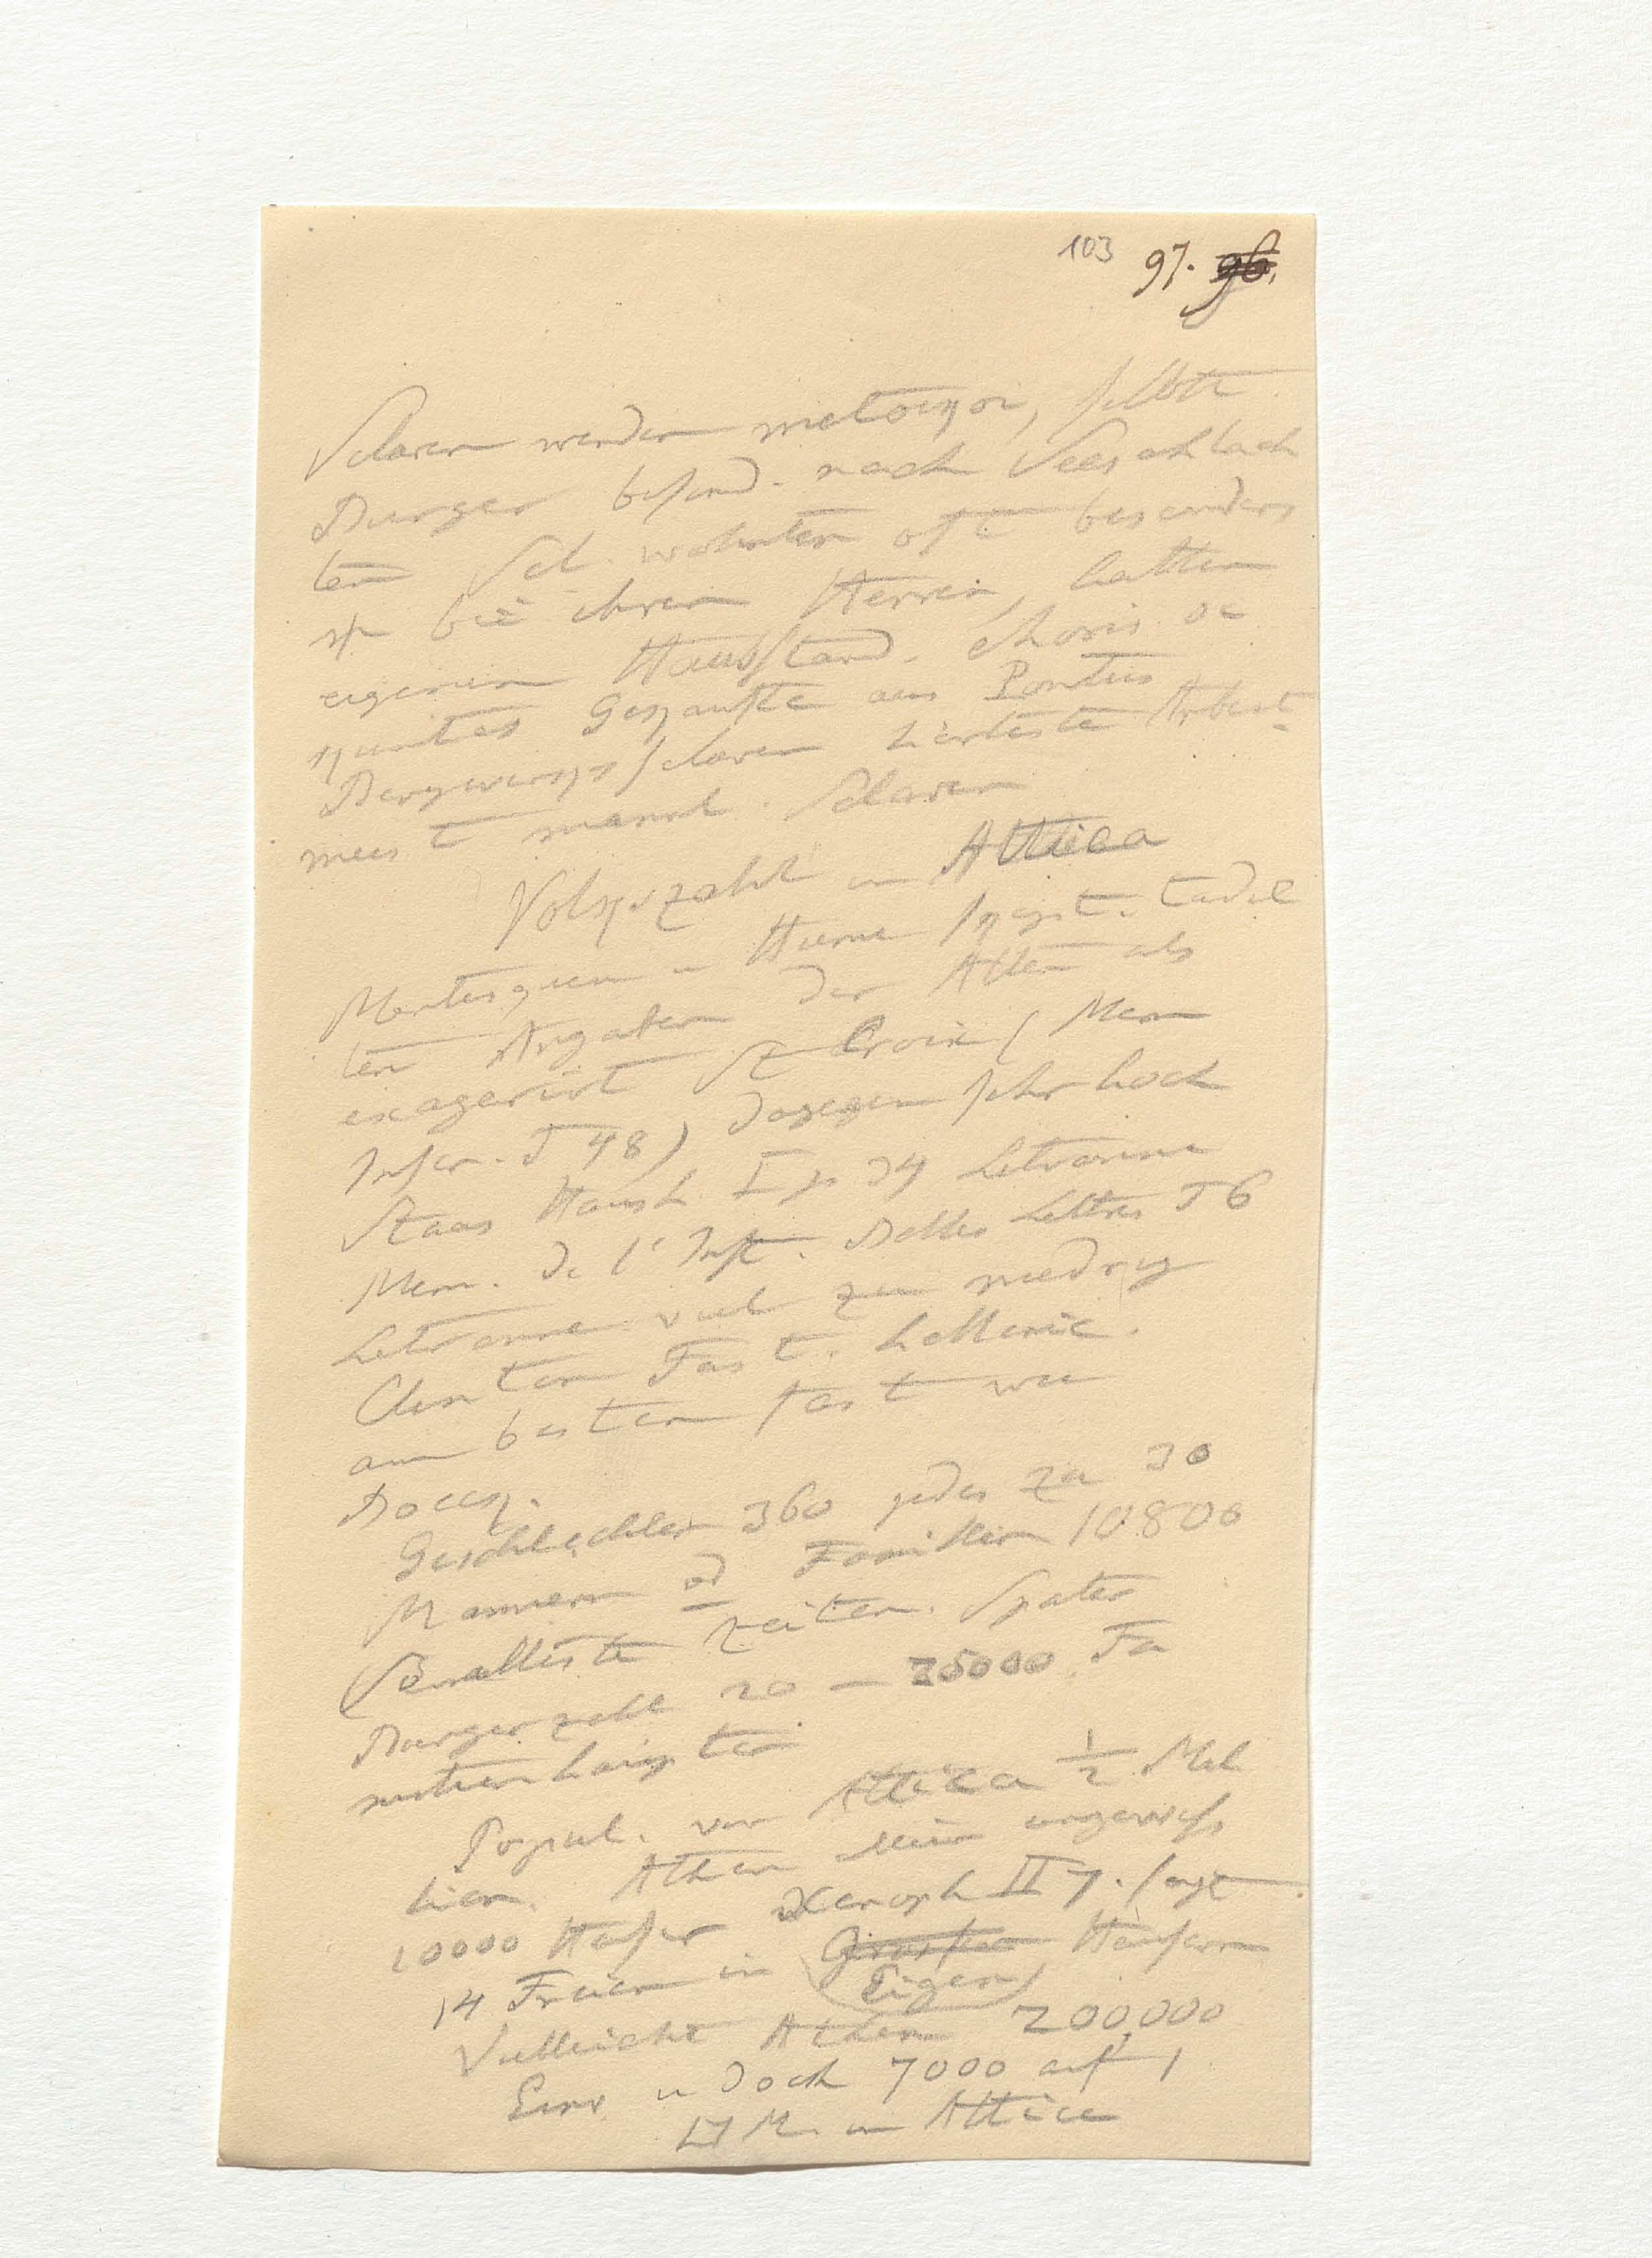 103 97. 96.
Sclaven werden metoeqoi, selbst
Burger besond. nach Seeschlach
ten Scl. wohnten oft besonders
bei ihren Herren, hatten
eigenen Hausstand.
Gekaufte aus Pontus
Bergwerkssclaven härteste Arbeit
meist mannl. Sclaven
Volkszahl in Attica
Montesquieu u Hume skept. tadel
ten Angaben der Alten als
exagerirt St Croix (Mem
Inscr. T 48) dagegen sehr hoch
Staas Haush. I p 34 Letronne
Mem. de l'Inst. Belles Lettres T 6
Letronne viel zu niedrig
Clinton Fast. hellenic.
am besten fast wie
Boeck.
Geschlechter 360 jedes zu 30
Mannern od Familien 10800
in altesten Zeiten. Spater
Burgerzahl 20 – 25000 Fa
milienhaupter
Popul. von Attica 1/2 Mil
lion. Athen allein ungewiss
10000 Hauser Xenoph II 7. sagt
14 Freien in Grossen Hausern
(Eigen)
Vielleicht Athen 200,000
Einw. u doch 7000 auf 1
□ M. in Attica